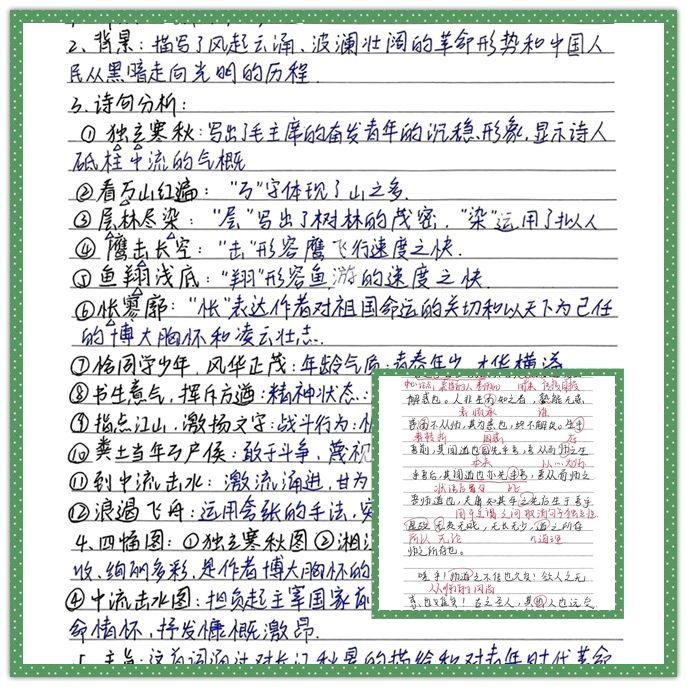 2、背景：描写了风起云涌、波澜壮阔的革命形势和中国人
民从黑暗走向光明的历程.
3、诗句分析：
① 独立寒秋：写出了毛主席的奋发青年的沉稳形象,显示诗人
砥柱中流的气概
②看万山红遍："万"字体现了山之多.
③层林尽染："层"写出了树林的茂密，"染"运用了拟人
④ 鹰击长空："击"形容鹰飞行速度之快.
⑤ 鱼翔浅底："翔"形容鱼游的速度之快.
⑥ 怅寥廓："怅"表达作者对祖国命运的关切和以天下为己任
的博大胸怀和凌云壮志.
⑦恰同学少年，风华正茂：年龄气质：青春年少，才华横溢
⑧书生意气，挥斥方遒：精神状态：
⑨指点江山，激扬文字：战斗行为：
⑩粪土当年万户侯：敢于斗争，蔑视
⑪到中流击水：激流涌进，甘为
⑫浪遏飞舟：运用夸张的手法，
4、四幅图：①独立寒秋图②湘江
收、绚丽多彩，是作者博大胸怀的
④中流击水图：担负起主宰国家前
命情怀，抒发慷慨激昂.
5、主旨：这首词通过对长江秋景的描绘和对青年时代革命
解惑也。人非生而知之者，孰能无惑，
惑而不从师，其为惑也，终不解矣。生乎
吾前，其闻道也固先乎吾，吾从而师之；生
乎吾后，其闻道也亦先乎吾，吾从而师之
吾师道也，夫庸知其年之先后生于吾乎
用于主谓之间取消句子独立性
是故无贵无贱，无长无少，道之所存
所以 无论 道理
师之所存也。
嗟乎！师道之不传也久矣！欲人之无
惑也难矣！古之圣人，其出人也远矣